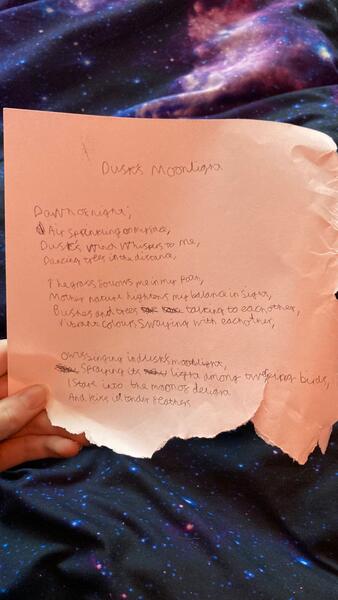 Dusk's Moonlight
Dawn of night;
Air sprinkling on my face,
Dusk's wind whispers to me,
Dancing trees in the distance,
The grass follows me in my path,
Mother nature heightens my balance in sight,
Bushes and trees talking to each other,
Vibrant colours swaying with each other,
Owls singing in dusk's moonlight,
Spraying its light among birds,
I stare into the moon's delight
And kiss feathers